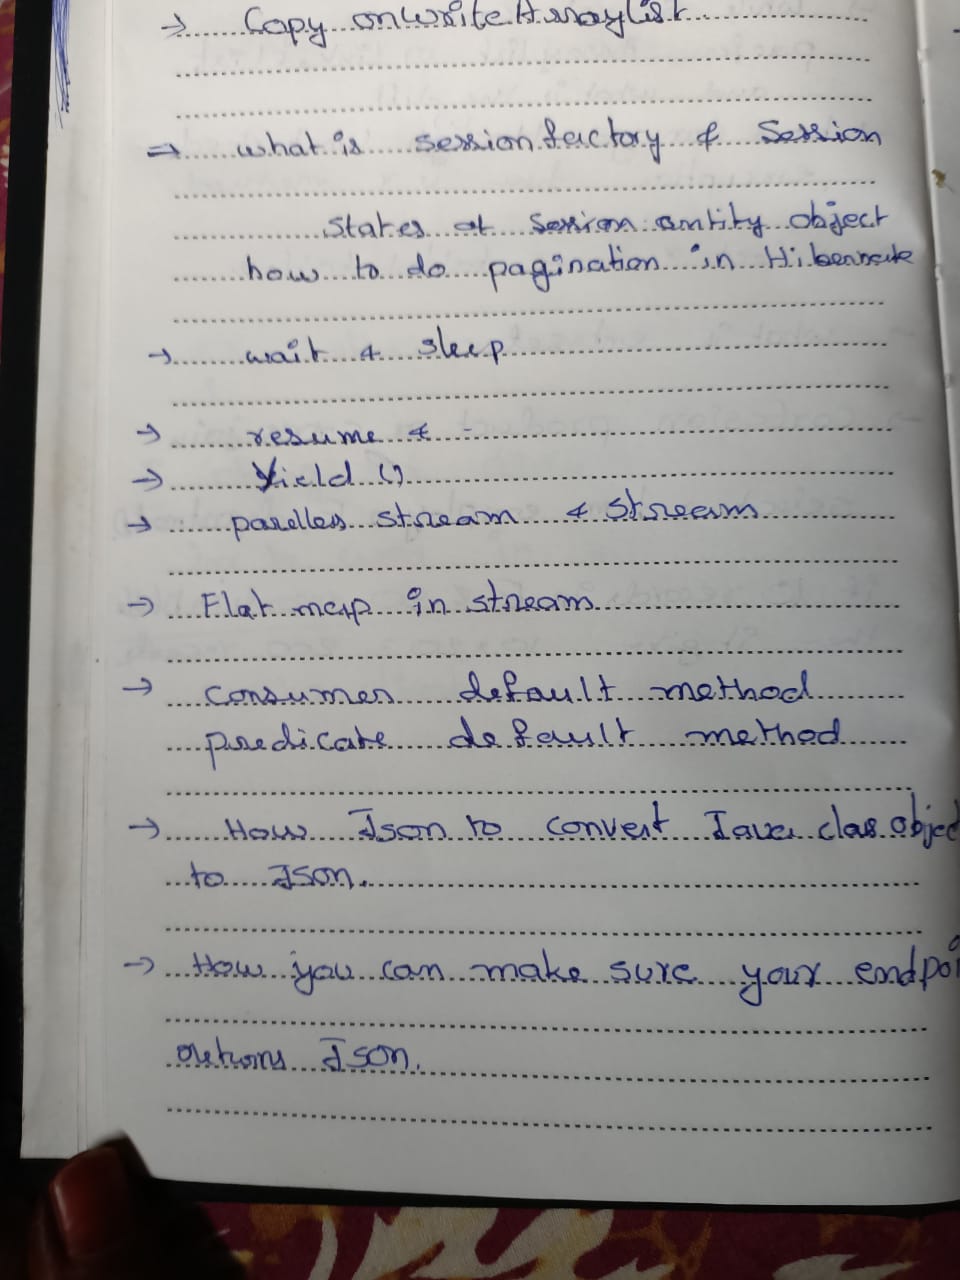 → Copy onWriteArraylist
→ what is session factory & Session
states at Session entity object
how to do pagination in Hibernate
→ wait & sleep
→ resume & -
→ Yield ()
→ parelles stream & stream
→ Flat map in stream
→ consumer default method
predicate default method
→ How Json to convert Java clas objec
to Json.
→ How you can make sure your endpoi
returns Json.